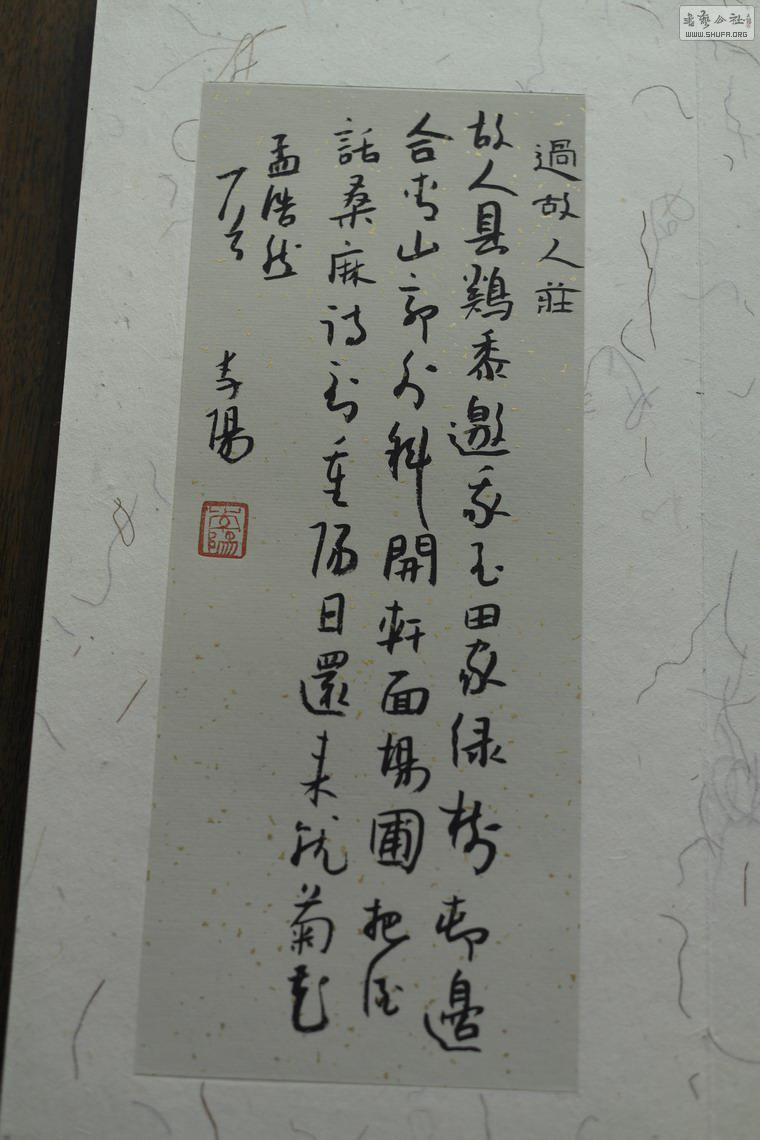 過故人莊
故人具鷄黍邀我至田家緑樹邨邊
合青山郭外斜開軒面場圃把酒
話桑麻待到重陽日還來就菊花
孟浩然
丁亥 李陽
李陽
書藝公社
WWW.SHUFA.ORG